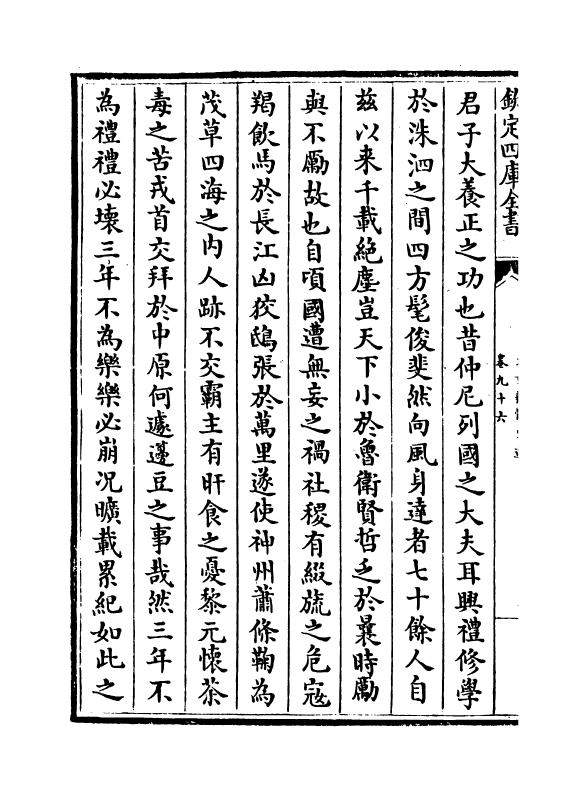 欽定四庫全書
卷九十六
君子大養正之功也昔仲尼列國之大夫耳興禮修學
於洙泗之間四方髦俊斐然向風身達者七十餘人自
兹以来千載絶塵豈天下小於魯衛賢哲乏於曩時勵
與不勵故也自頃國遭無妄之禍社稷有綴旒之危寇
羯飲馬於長江凶狡鴟張於萬里遂使神州蕭條鞠為
茂草四海之内人跡不交霸主有旰食之憂黎元懷荼
毒之苦戎首交拜於中原何遽籩豆之事哉然三年不
為禮禮必壊三年不為樂樂必崩况曠載累紀如此之